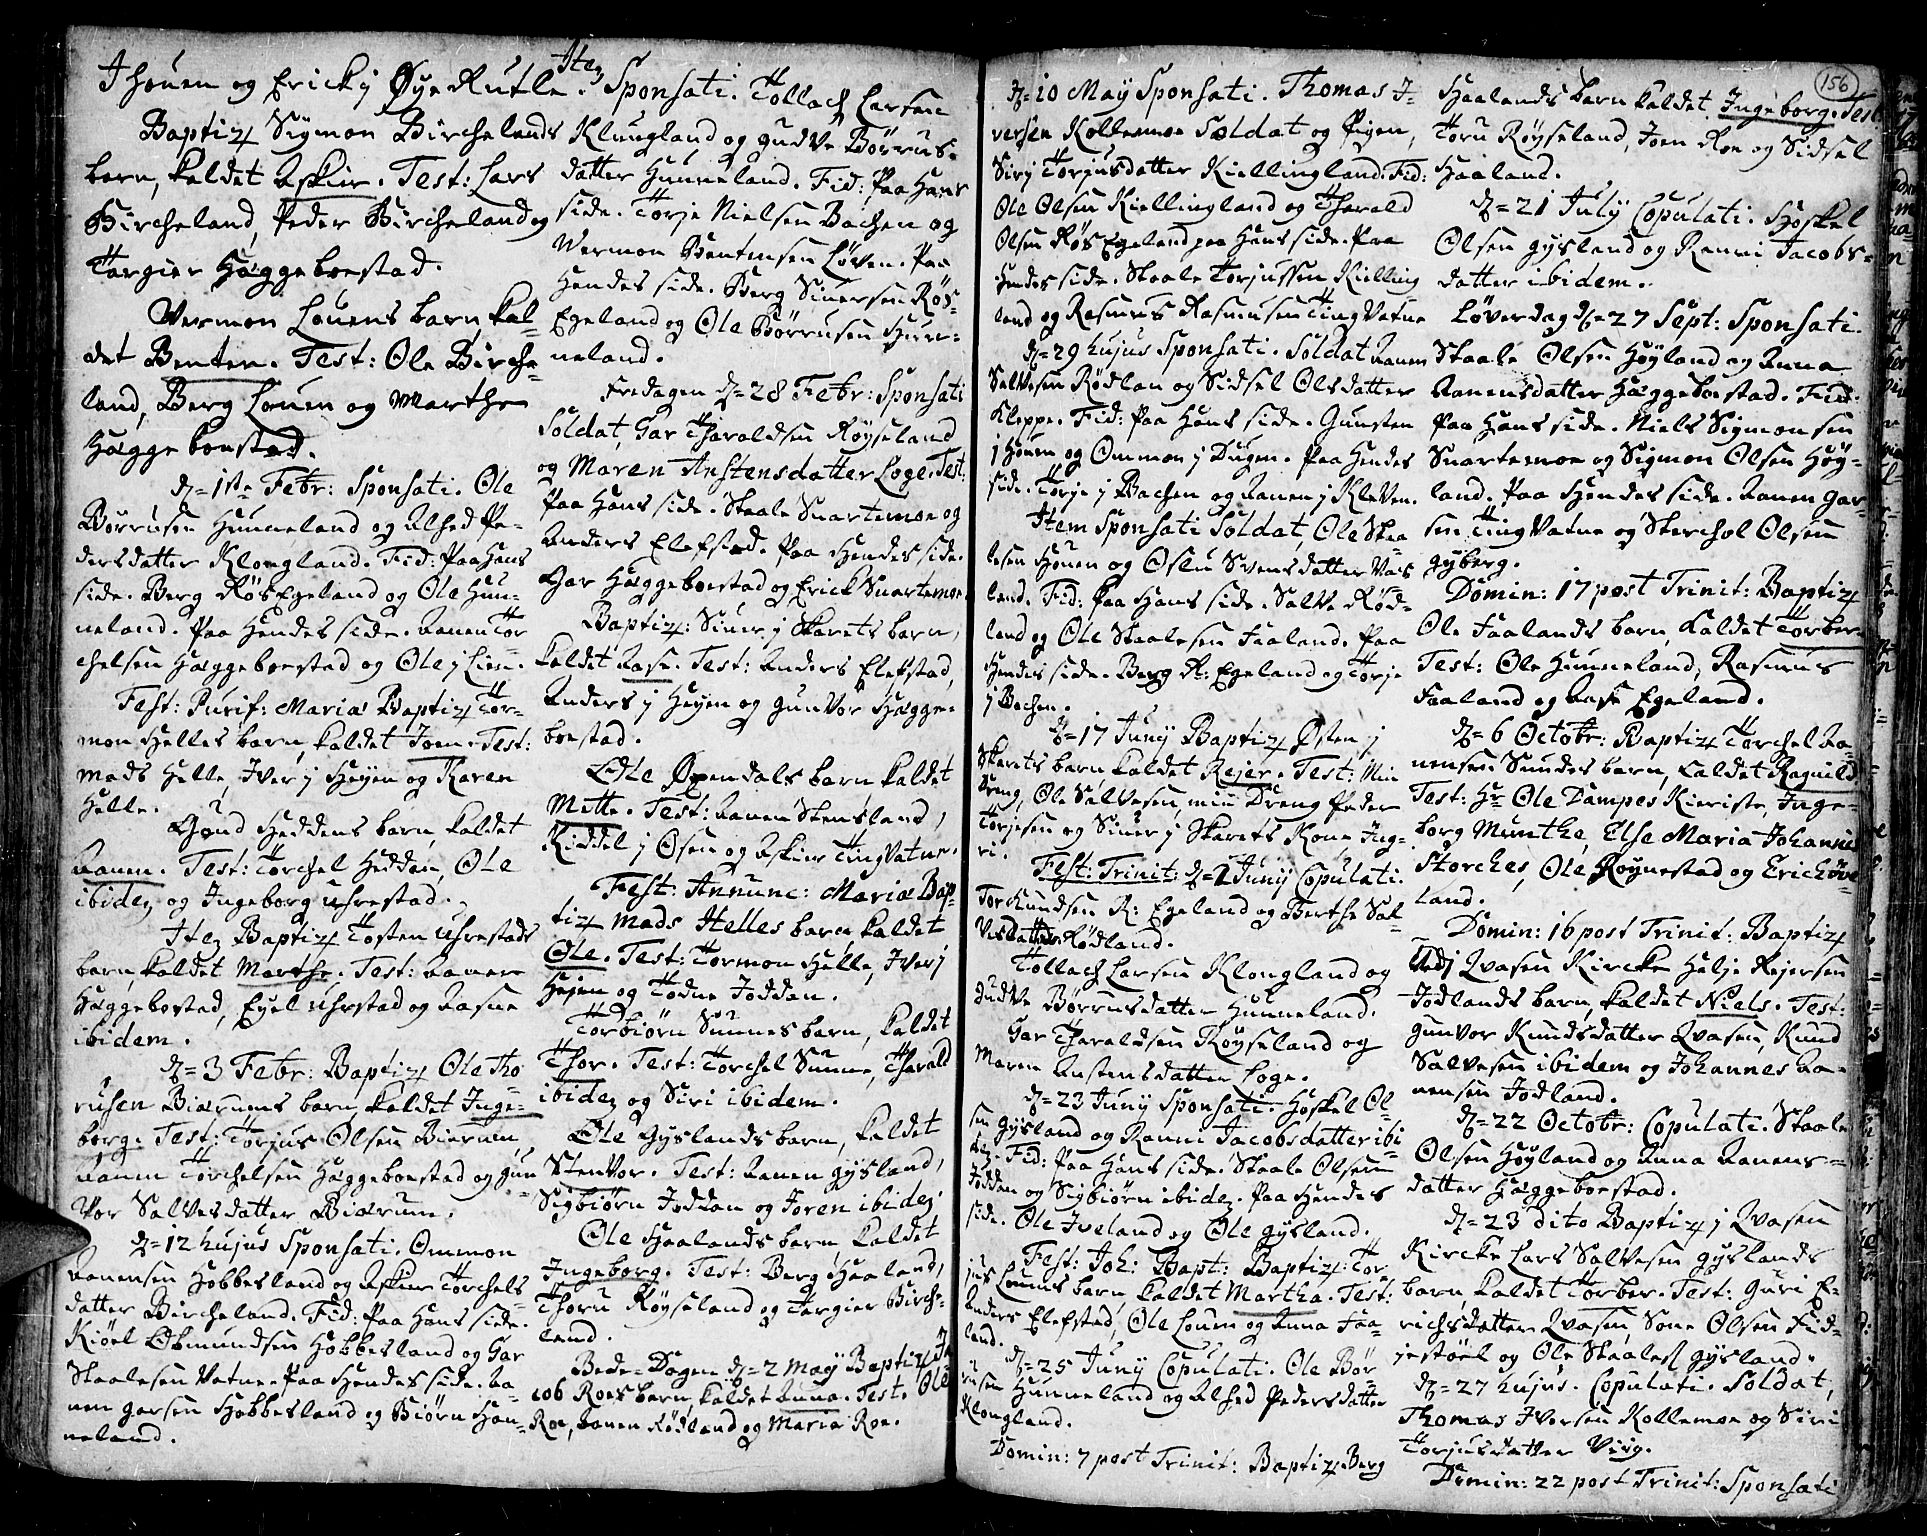 J houen og Erick j Øye Rutle.
Baptiz. Sigmon Birchelands
barn, kaldet Askier. Test: Lars
Bircheland, Peder Bircheland og
Targier Hæggeboestad.
Wermon Louens barn, kal-
det Bentem. Test: Ole Birche-
land, Berg Louen og Marthe
Hæggeboestad.
d. 1ste Febr: Sponsati. Ole
Børrusen Hunneland og Alhed Pe-
dersdatter Klongland. Fid: Paa Hans
side. Berg RøsEgeland og Ole Hun-
neland. Paa Hendes side. Aanen Tor-
chelsen Hæggeboestad og Ole j Lien.
Fest: Purif: Mariæ Baptiz. Tor-
mon Helles barn, kaldet Joen. Test:
Mads Helle, Iver j Heyen og Karen
Helle.
Gund Heddens barn, kaldet
Aanen. Test: Torchel Heddan, Ole
ibidem og Ingeborg Uhrestad.
Item Baptiz. Tosten Uhrestads
barn, kaldet Marthe. Test: Aanen
Hæggebostad, Eyel Uhrstad og Aasne
ibidem.
d. 3 Febr: Baptiz. Ole Tho-
rusen Biærums barn, kaldet Inge-
borg. Test: Torjus Olsen Bierum,
Aanen Torchelsen Hæggeboestad og Gun-
vor Salvesdatter Biærum.
d. 12 hujus Sponsati. Ommon
Aanensen Hobbesland og Askier Torchels-
datter Bircheland. Fid: Paa Hans side.
Kiöel Obmundsen Hobbesland og Gar
Skaalesen Vatne. Paa Hendes side. Aa-
nen Garsen Hobbesland og Biørn Hun-
neland.
Item Sponsati. Tollach Larsen
Klungland og Gudve Børrus-
datter Hunneland. Fid: Paa Hans
side. Torje Nielsen Bachen og
Wermon Bentensen Löven. Paa
Hendes side. Berg Siversen Røs-
Egeland og Ole Børrusen Hun-
neland.
Fredagen d. 28 Febr: Sponsati
Soldat, Gar Tharaldsen Røyseland
og Maren Anstensdatter Loge. Test:
Paa Hans side. Skaale Snartemoe og
Anders Elefstad. Paa Hendes side.
Gar Hæggeboestad og Erick Snartemoe.
Baptiz: Siver j Skarets barn,
kaldet Aase. Test: Anders Elefstad,
Anders j Heyen og Gunvor Hægge-
boestad.
Ole Øxendals barn kaldet
Mette. Test: Aanen Stensland,
Kiddel j Øsen og Askier TingVatne.
Fest: Annunc: Mariæ Bap-
tiz. Mads Helles barn kaldet
Ole. Test: Tormon Helle, Iver j
Heyen og Todne Joddan.
Torbiörn Sunnes barn, kaldet
Thor. Test: Torchel Sunne, Tharald
ibidem og Siri ibidem.
Ole Gyslands barn, kaldet
StenVor. Test: Aanen Gysland,
Sigbiörn Joddan og Joren ibidem.
Ole Haalands barn, kaldet
Ingeborg. Test: Berg Haaland,
Thoru Røyseland og Targier Birche-
land.
Bede-Dagen d. 2 May Baptiz. Ja-
cob Roes barn, kaldet Anna. Test. Ole
Roe, Aanen Rödland og Maria Roe.
d. 10 May Sponsati. Thomas I-
versen Kollemoe Soldat og Pigen,
Sirj Torjusdatter Kiellingland. Fid:
Ole Olsen Kiellingland og Tharald
Olsen RøsEgeland paa Hans side. Paa
Hendes side. Skaale Torjussen, Kielling-
land og Rasmus Rasmusen TingVatne
d. 29 hujus Sponsati. Soldat Aanen
Salvesen Rødlan og Sidsel Olsdatter
Kleppe. Fid: Paa Hans side. Gunsten
j Houen og Ommon j Dugen. Paa Hendes
side. Torje j Bachen og Aanen j Kleven.
Item Sponsati Soldat, Ole Skaa-
lesen Houen og Oslu Svensdatter Vats-
land. Fid: Paa Hans side. Salve Rød-
land og Ole Skaalesen Faaland. Paa
Hendes side. Berg R: Egeland og Torje
j Bachen.
d. 17 Junij Baptiz. Østen j
Skarets barn kaldet Rejer. Test: Min
Dreng, Ole Salvesen, min Dreng Peder
Torjesen og Siver j Skarets Kone, Ing-
ri.
Fest: Trinit: d. 1 Junij Copulati.
Tor Knudsen R: Egeland og Berthe Sal-
Vesdatter Rødland.
Tollach Larsen Klongland og
Gudve Börrusdatter Hunneland.
Gar Tharaldsen Röyseland og
Maren Anstensdatter Loge.
d. 23 Junij Sponsati. Høskel Ol-
sen Gysland og Ranni Jacobsdatter ibi-
dem. Fid: Paa Hans side. Skaale Olsen
Joddan og Sigbiörn ibidem. Paa Hendes
side. Ole Iveland og Ole Gysland.
Fest: Joh: Bapt: Baptiz. Tor-
jus Louens barn, kaldet Martha. Test:
Anders Elefstad, Ole Louen og Anna Faa-
land.
d. 25 Junij Copulati. Ole Bör-
rusen Hunneland og Alhed Pedersdatter
Klongland.
Domin: 7 post Trinit: Baptiz. Berg
156
Haalands barn kaldet Ingeborg. Test:
Toru Røyseland, Joen Roe og Sidsel
Haaland.
d. 21 July Copulati. Høskel
Olsen Gysland og Ranni Jacobs-
datter ibidem.
Løverdag d. 27 Sept: Sponsati.
Skaale Olsen Høyland og Anna
Aanensdatter Hæggeboestad. Fid:
Paa Hans side. Niels Sigmonsen
Snartemoe og Sigmon Olsen Høy-
land. Paa Hendes side. Aanen Gar-
sen TingVatne og Sterchol Olsen
Gyberg.
Domin: 17 post Trinit: Baptiz
Ole Faalands barn, kaldet Torber.
Test: Ole Hunneland, Rasmus
Faaland og Aase Egeland.
d. 6 Octobr: Baptiz Torchel Aa-
nensen Sundes barn, kaldet Ragnild
Test: Hr Ole Dampes Kieriste, Inge-
borg Munthe, Else Maria Johanne
Storches, Ole Røynestad og Erich Øve-
land.
Domin: 16 post Trinit: Baptiz
Udj Qvasen Kircke Helje Rejersen
Jodlands barn, kaldet Niels. Test:
Gunvor Knudsdatter Qvasen, Knud
Salvesen ibidem og Johannes Aa-
nensen Jodland.
d. 22 Octobr: Copulati. Skaale
Olsen Høyland og Anna Aanens-
datter Hæggeboestad.
d. 23 dito Baptiz. j Qvasen
Kircke Lars Salvesen Gyslands
barn, kaldet Torber. Test: Guri E-
richsdatter Qvasen, Sone Olsen Fid-
jestöel og Ole Skaales. Gysland.
d. 27 hujus. Copulati. Soldat,
Thomas Iversen Kollemoe og Siri
Torjusdatter Virg.
Domin: 22 post Trinit: Sponsati